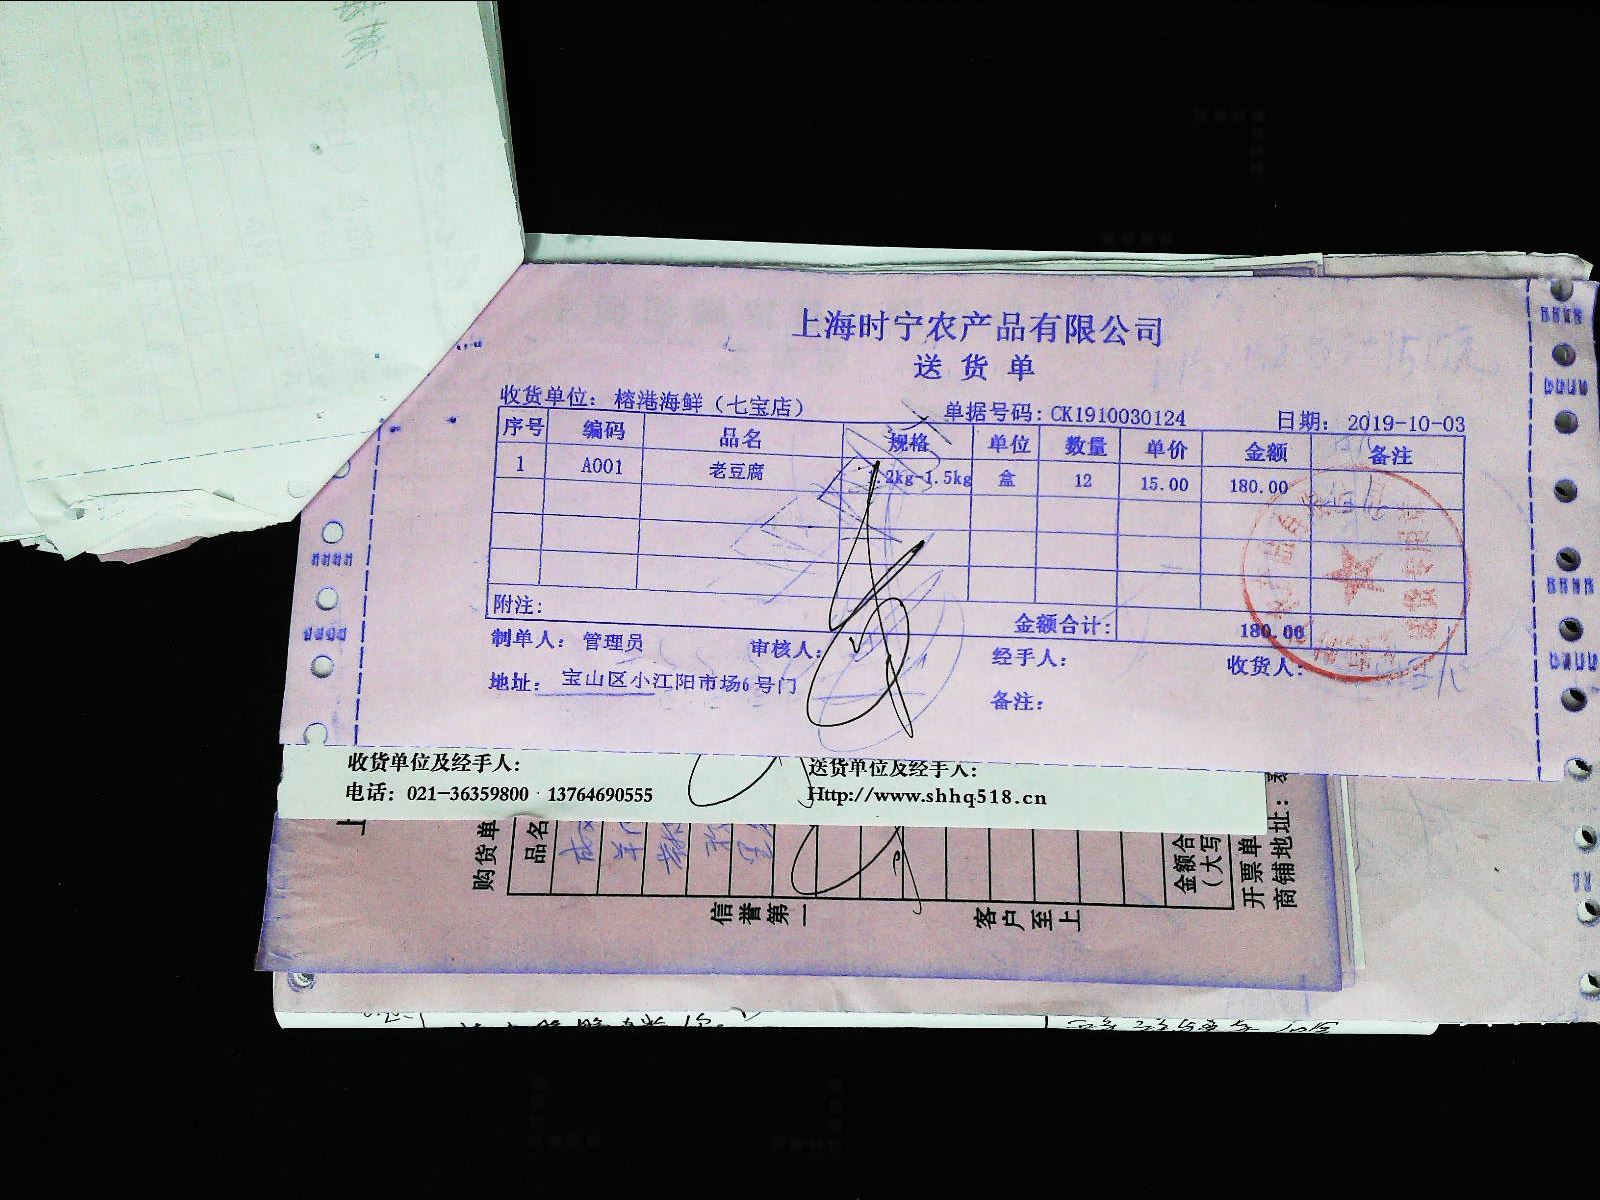 上海时宁农产品有限公司
送货单
收货单位：榕港海鲜（七宝店） 单据号码：CK1910030124 日期：2019-10-03
序号 编码 品名 规格 单位 数量 单价 金额 备注
1 A001 老豆腐 .2kg-1.5kg 盒 12 15.00 180.00
附注： 金额合计： 180.00
制单人：管理员 审核人： 经手人： 收货人：
地址：宝山区小江阳市场6号门 备注：
收货单位及经手人： 送货单位及经手人：
电话：021-36359800 13764690555 Http://www.shhq518.cn
购货单
品名
金额合
（大写
开票单
商铺地址：
信誉第一
客户至上